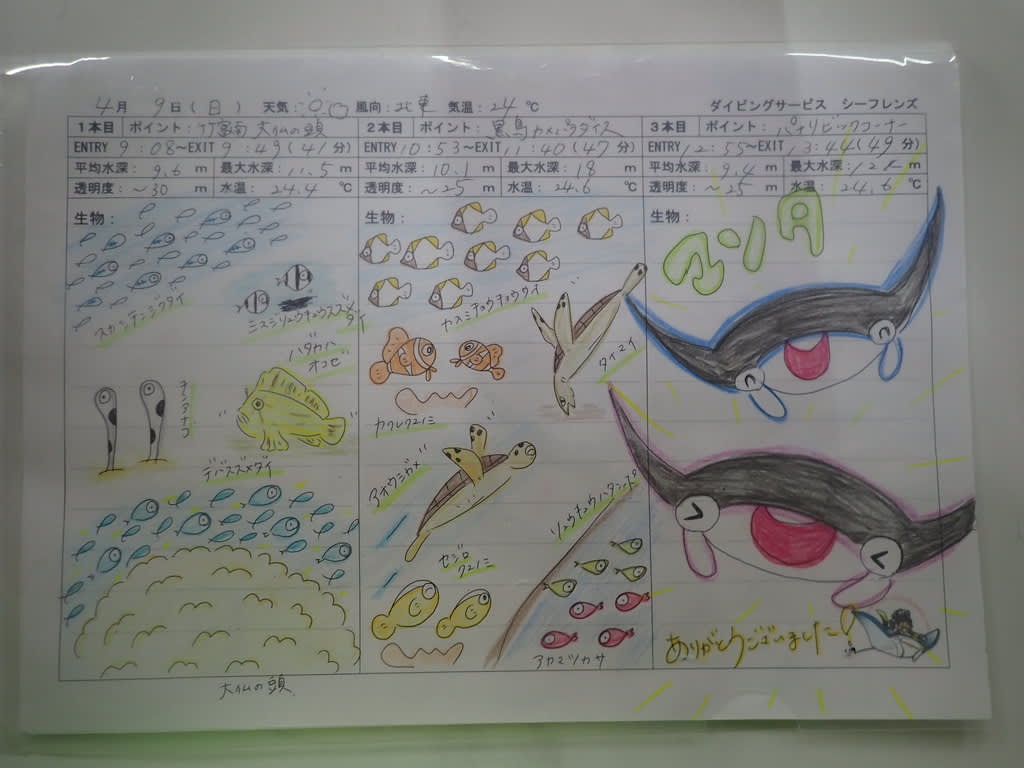 4月 9日(日) 天気: 風向:北東 気温:24℃ ダイビングサービス シーフレンズ
1本目 ポイント:竹富南 大仏の頭
ENTRY 9:08~EXIT 9:49(41分)
平均水深:9.6m 最大水深:11.5m
透明度:~30m 水温:24.4℃
生物:
スカシテンジクダイ
ミスジリュウキュウスズメダイ
ハダカハオコゼ
チンアナゴ
デバスズメダイ
大仏の頭
2本目 ポイント:黒島カメパラダイス
ENTRY 10:53~EXIT 11:40(47分)
平均水深:10.1m 最大水深:18m
透明度:~25m 水温:24.6℃
生物:
カスミチョウチョウウオ
タイマイ
カクレクマノミ
アオウミガメ
リュウキュウハタンポ
セジロクマノミ
アカマツカサ
3本目 ポイント:パナリビッグコーナー
ENTRY 12:55~EXIT 13:44(49分)
平均水深:9.4m 最大水深:12.1m
透明度:~25m 水温:24.6℃
生物:
マンタ
ありがとうございました!